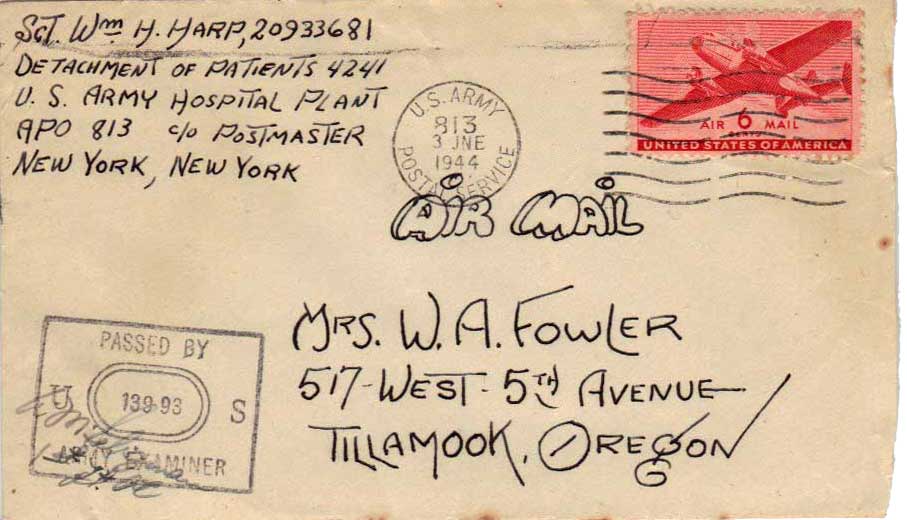 SGT. Wm H. HARP, 20933681
DETACHMENT OF PATIENTS 4241
U. S. ARMY HOSPITAL PLANT
APO 813 c/o POSTMASTER
NEW YORK, NEW YORK
U.S. ARMY
813
3 JNE
1944
POSTAL SERVICE
AIR 6 MAIL
CENTS
UNITED STATES OF AMERICA
AIR MAIL
MRS. W. A. FOWLER
517-WEST-5TH AVENUE
TILLAMOOK, OREGON
PASSED BY
U 139-93 S
ARMY EXAMINER